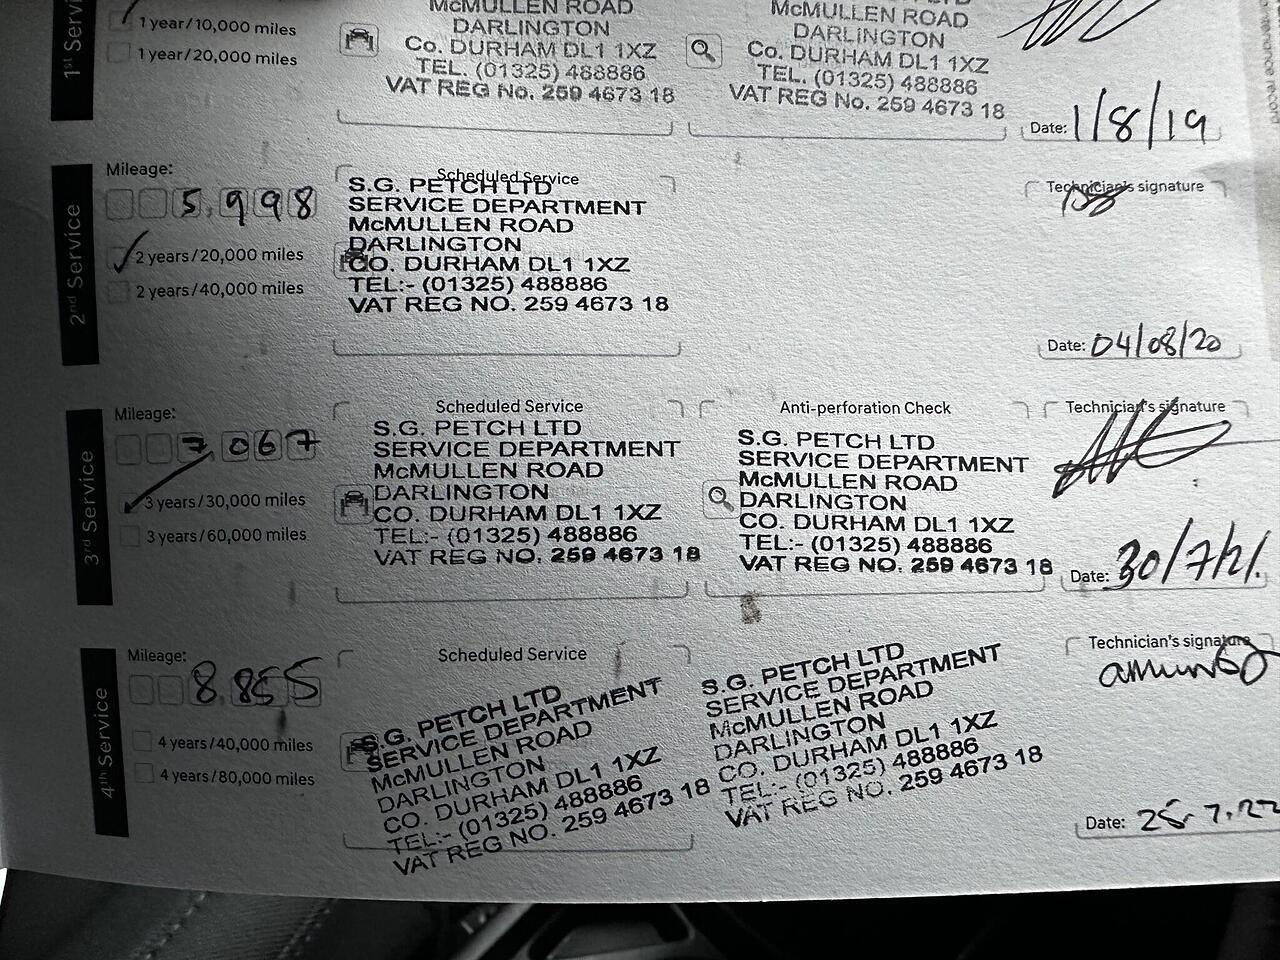 1st Servi
1 year/10,000 miles
1 year/20,000 miles
McMULLEN ROAD
DARLINGTON
Co. DURHAM DL1 1XZ
TEL. (01325) 488886
VAT REG No. 259 4673 18
McMULLEN ROAD
DARLINGTON
Co. DURHAM DL1 1XZ
TEL. (01325) 488886
VAT REG No. 259 4673 18
Date: 1/8/19
2nd Service
Mileage:
5,998
2 years/20,000 miles
2 years/40,000 miles
Scheduled Service
S.G. PETCH LTD
SERVICE DEPARTMENT
McMULLEN ROAD
DARLINGTON
CO. DURHAM DL1 1XZ
TEL:- (01325) 488886
VAT REG NO. 259 4673 18
Technician's signature
Date: 04/08/20
3rd Service
Mileage:
7067
3 years/30,000 miles
3 years/60,000 miles
Scheduled Service
S.G. PETCH LTD
SERVICE DEPARTMENT
McMULLEN ROAD
DARLINGTON
CO. DURHAM DL1 1XZ
TEL:- (01325) 488886
VAT REG NO. 259 4673 18
Anti-perforation Check
S.G. PETCH LTD
SERVICE DEPARTMENT
McMULLEN ROAD
DARLINGTON
CO. DURHAM DL1 1XZ
TEL:- (01325) 488886
VAT REG NO. 259 4673 18
Technician's signature
Date: 30/7/21.
4th Service
Mileage:
8.855
4 years/40,000 miles
4 years/80,000 miles
Scheduled Service
S.G. PETCH LTD
SERVICE DEPARTMENT
McMULLEN ROAD
DARLINGTON
CO. DURHAM DL1 1XZ
TEL:- (01325) 488886
VAT REG NO. 259 4673 18
S.G. PETCH LTD
SERVICE DEPARTMENT
McMULLEN ROAD
DARLINGTON
CO. DURHAM DL1 1XZ
TEL:- (01325) 488886
VAT REG NO. 259 4673 18
Technician's signature
Date: 25.7.22